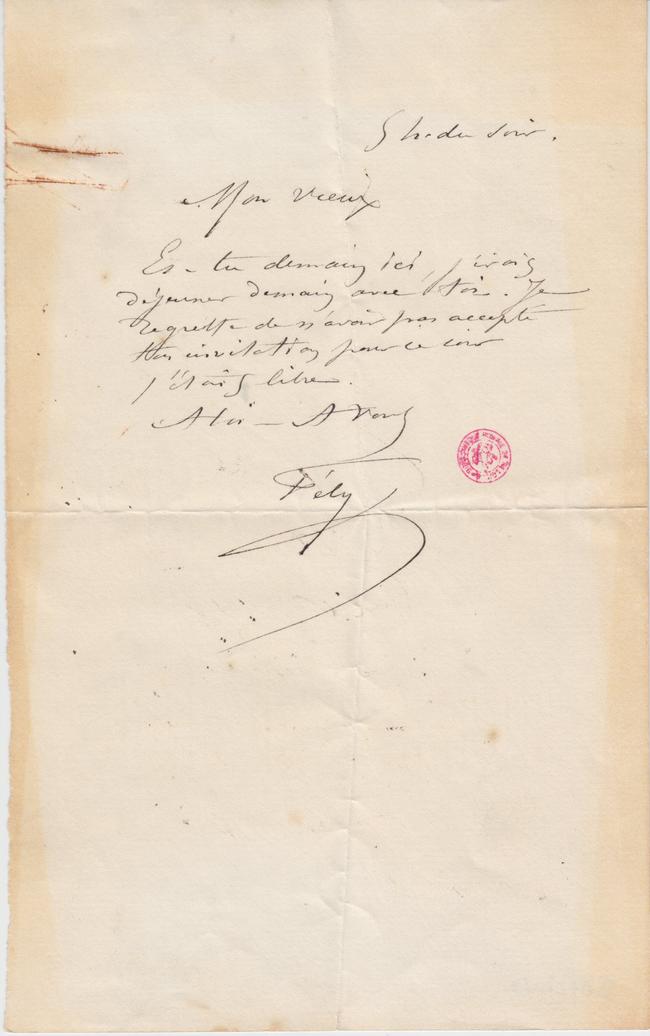 5 h. du soir.
Mon vieux
Es-tu demain ici j'irais
déjeuner demain avec toi. Je
regrette de n'avoir pas accepté
ton invitation pour ce soir
j'étais libre.
A toi - A vous
Fély